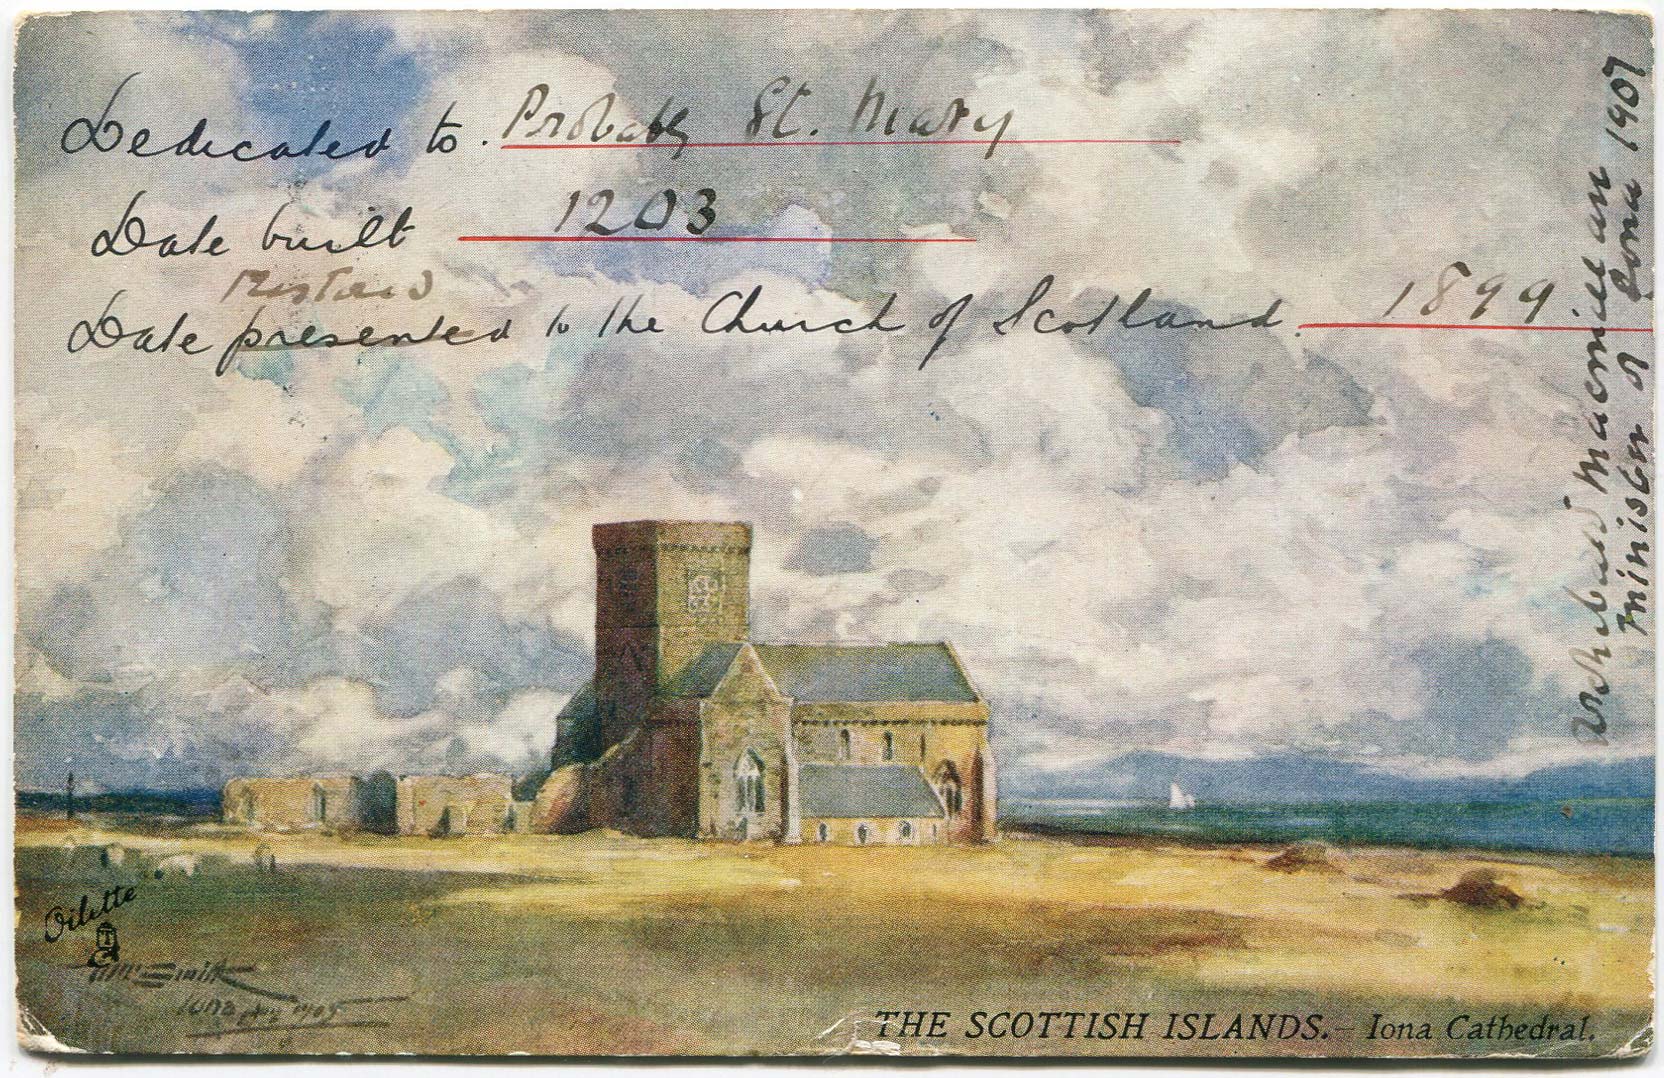 Dedicated to. Probably St. Mary
Date built 1203
Restored
Date presented to the Church of Scotland. 1899
Archibald Macmillan
Minister of Iona 1907
Oilette
Smith
Iona 1905
THE SCOTTISH ISLANDS.— Iona Cathedral.